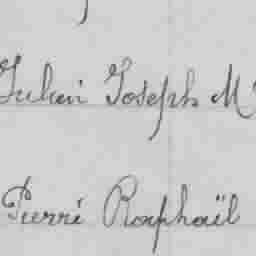 Julien Joseph M
Pierre Raphaël